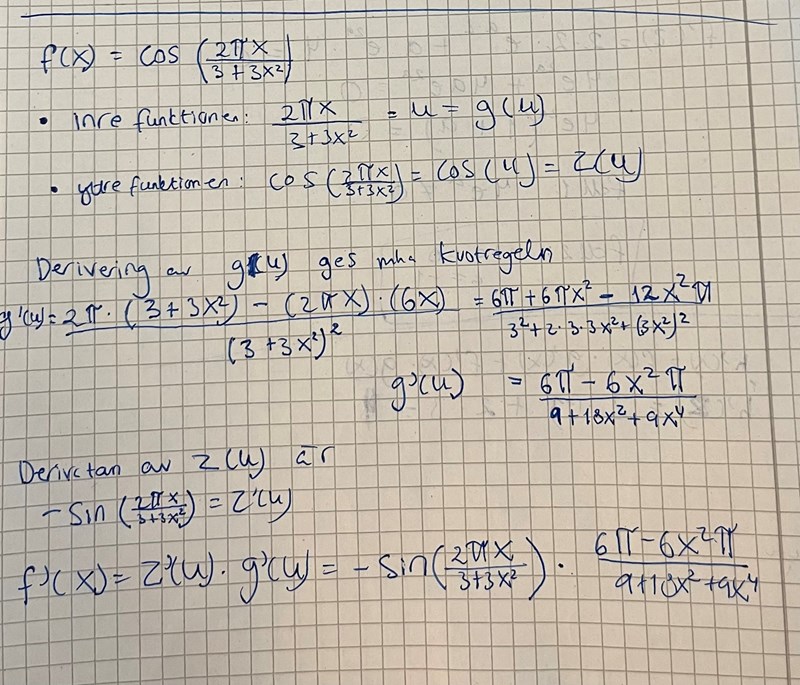 f(x) = cos (2πx / (3+3x²))
• inre funktionen: 2πx / (3+3x²) = u = g(u)
• yttre funktionen: cos (2πx / (3+3x²)) = cos(u) = z(u)
Derivering av g(u) ges mha kvotregeln
g'(u) = (2π · (3+3x²) − (2πx) · (6x)) / (3+3x²)² = (6π + 6πx² − 12x²π) / (3² + 2·3·3x² + (3x²)²)
g'(u) = (6π − 6x²π) / (9+18x²+9x⁴)
Derivatan av z(u) är
−sin (2πx / (3+3x²)) = z'(u)
f'(x) = z'(u) · g'(u) = −sin(2πx / (3+3x²)) · (6π−6x²π) / (9+18x²+9x⁴)